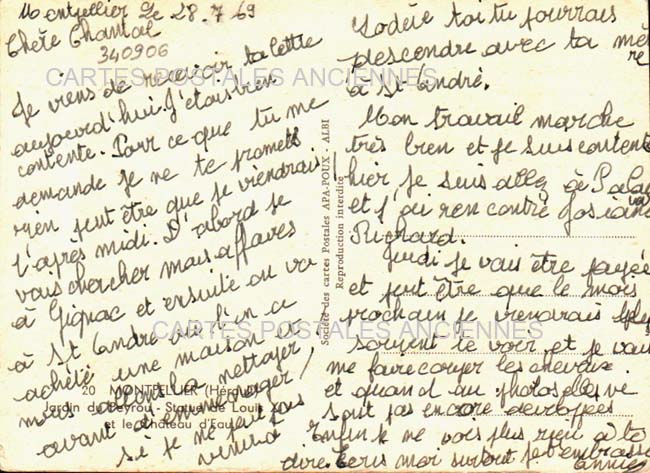 Montpellier Le 28.7.69
Chère Chantal
340906
Je viens de recevoir ta lettre
aujourd'hui. J'étais bien
contente. Pour ce que tu me
demande je ne te promett
rien peut être que je viendrais
l'après midi. D'abord je
vais chercher mais affaires
à Gignac et ensuite on va
à St André vu qu'on a
acheté une maison à
nous allons la nettoyer
avant d'emménager,
si je ne peut pas
venir à
Lodève toi tu pourrais
descendre avec ta mère
à St André.
Mon travail marche
très bien et je suis contente
hier je suis allez à Palavas
et j'ai rencontré Josiane
Richard.
Jeudi je vais être payée
et peut être que le mois
prochain je viendrais plus
souvent te voir, et je vais
me faire couper les cheveux
et quand au photos elles ne
sont pas encore devropées
Enfin je ne vois plus rien à te
dire. Ecris moi surtout. Je t'embrasse
Annie
CARTES POSTALES ANCIENNES
CARTES POSTALES ANCIENNES
Société des cartes Postales APA-POUX - ALBI
Reproduction interdite
20 MONTPELLIER (Hérault)
Jardin du Peyrou - Statue de Louis XIV
et le Château d'Eau